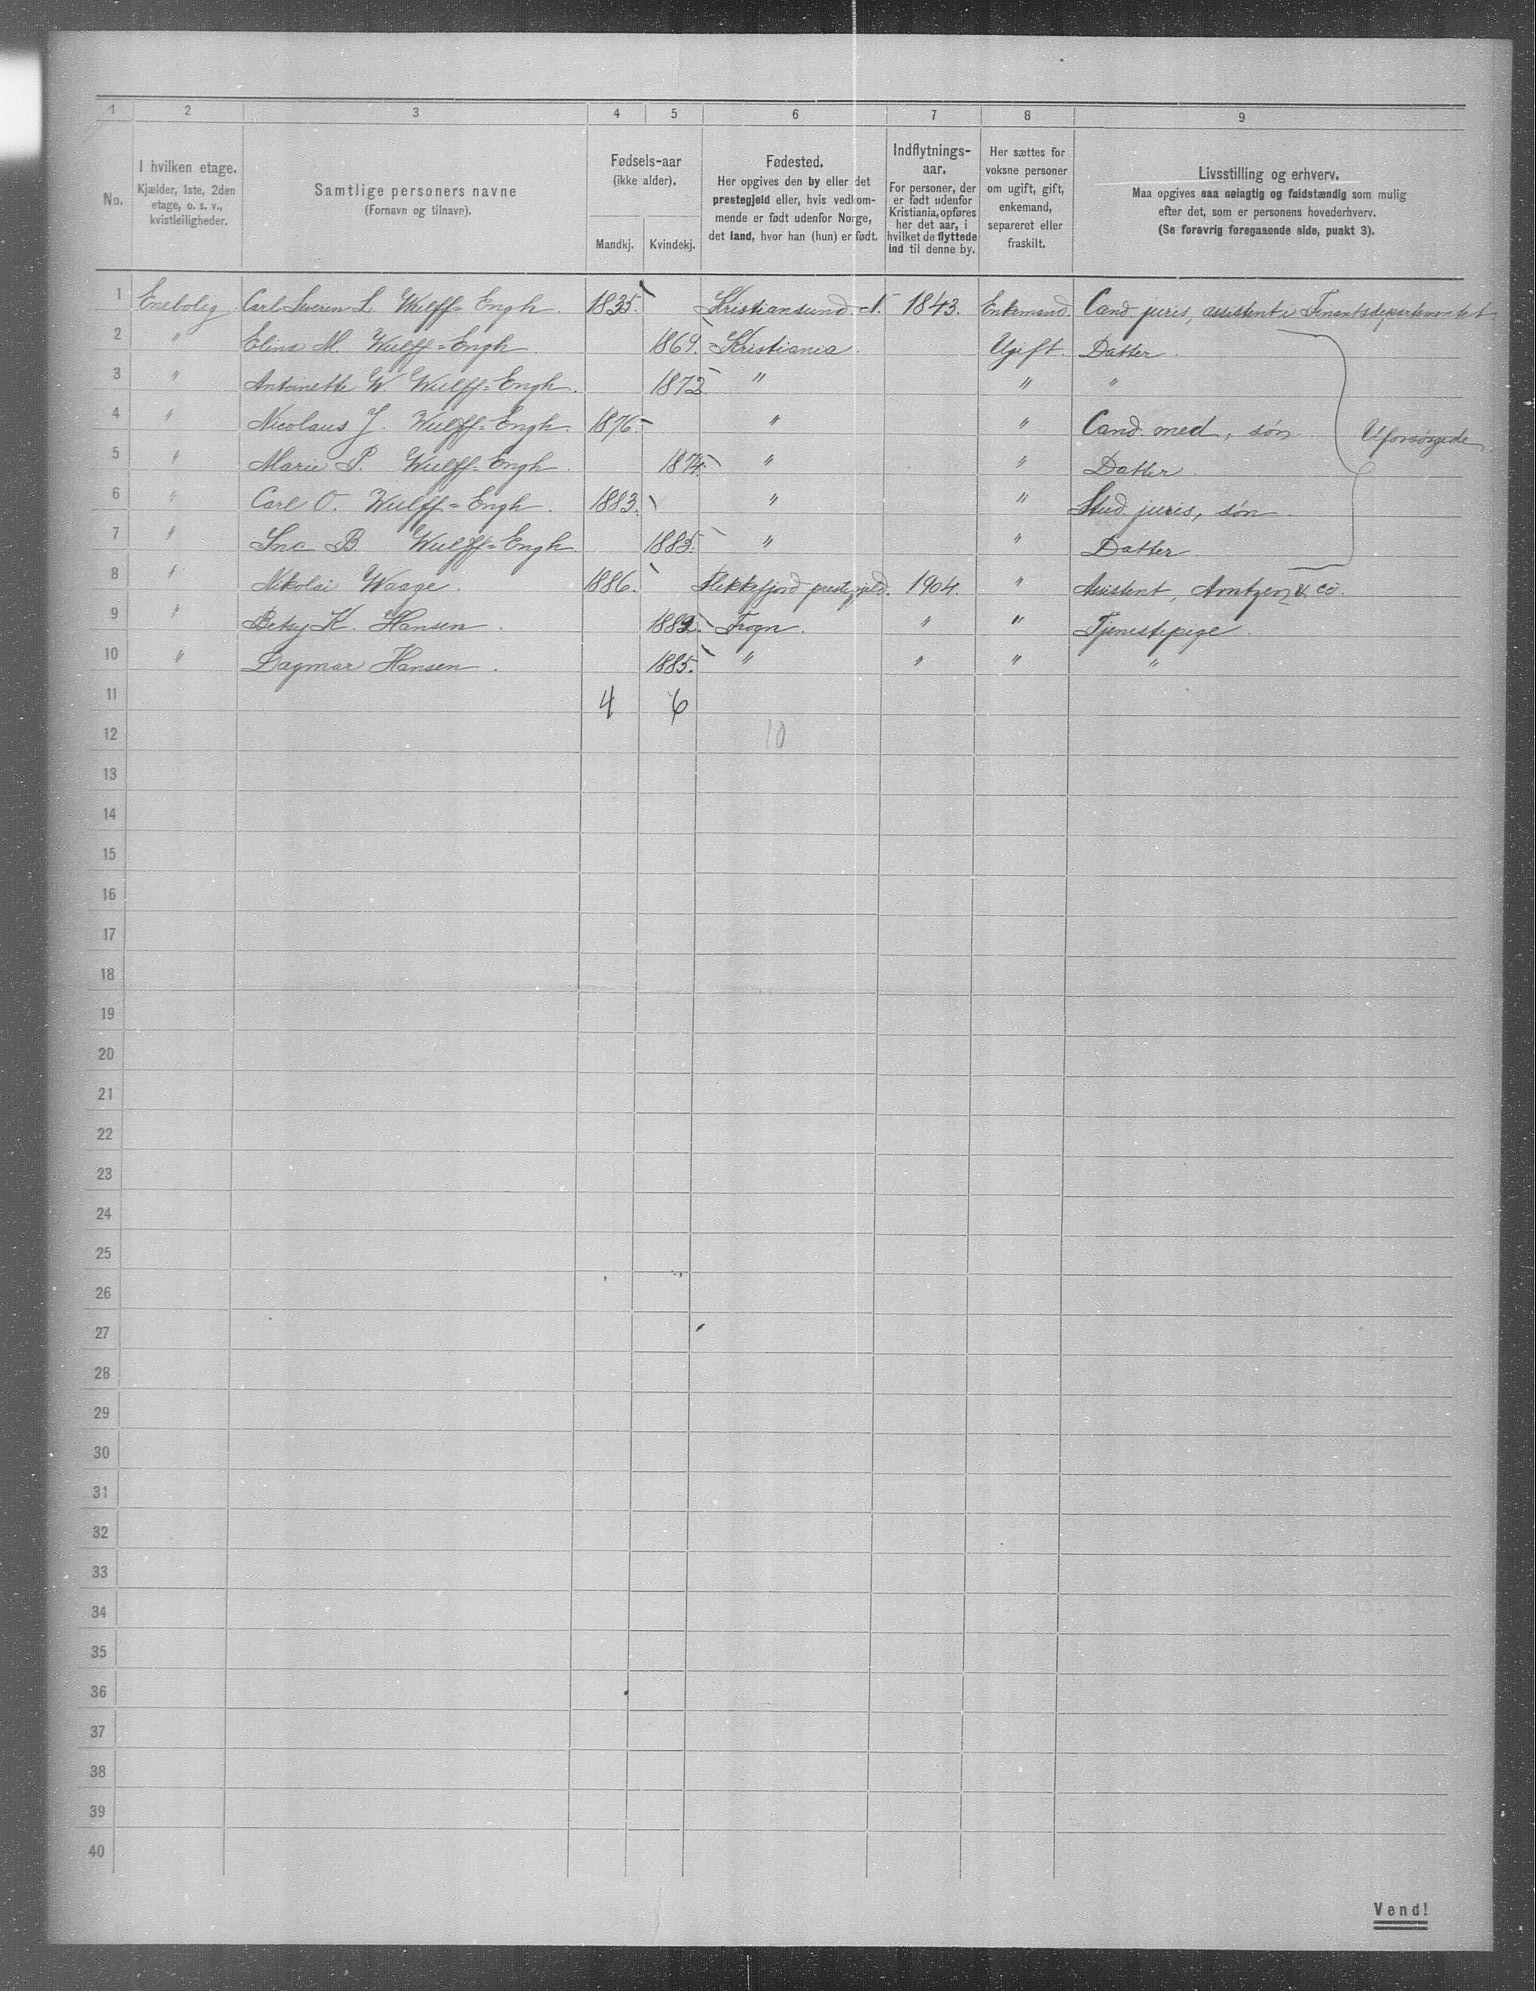 1 2 3 4 5 6 7 8 9
No.
I hvilken etage.
Kjælder, 1ste, 2den
etage, o. s. v.,
kvistleiligheder.
Samtlige personers navne
(Fornavn og tilnavn).
Fødsels-aar
(ikke alder).
Mandkj. Kvindekj.
Fødested.
Her opgives den by eller det
prestegjeld eller, hvis vedkom-
mende er født udenfor Norge,
det land, hvor han (hun) er født.
Indflytnings-
aar.
For personer, der
er født udenfor
Kristiania, opføres
her det aar, i
hvilket de flyttede
ind til denne by.
Her sættes for
voksne personer
om ugift, gift,
enkemand,
separeret eller
fraskilt.
Livsstilling og erhverv.
Maa opgives saa nøiagtig og fuldstændig som mulig
efter det, som er personens hovederhverv.
(Se forøvrig foregaaende side, punkt 3).
1 Enebolig. Carl Severin L. Wulff=Engh. 1835 Kristiansund N. 1843. Enkemand. Cand. juris, assistent i Finantsdepartementet.
2 " Elina M. Wulff=Engh. 1869. Kristiania. Ugift. Datter.
3 " Antonette W Wulff=Engh. 1872. " " "
4 " Nicolaus J. Wulff=Engh. 1876. " " Cand. med, søn. Uforsørgede
5 " Marie P. Wulff=Engh. 1874. " " Datter.
6 " Carl O. Wulff=Engh. 1883. " " Stud. juris, søn.
7 " B. Wulff=Engh. 1885. " " Datter.
8 " Nikolai Waage. 1886. Flekkefjord prestegjeld. 1904. " Assistent, Arntzen & co.
9 " Betsy K. Hansen. 1882. Frogn. " " Tjenestepige.
10 " Dagmar Hansen. 1885. " " " "
11 4 6
12 10
13
14
15
16
17
18
19
20
21
22
23
24
25
26
27
28
29
30
31
32
33
34
35
36
37
38
39
40
Vend!